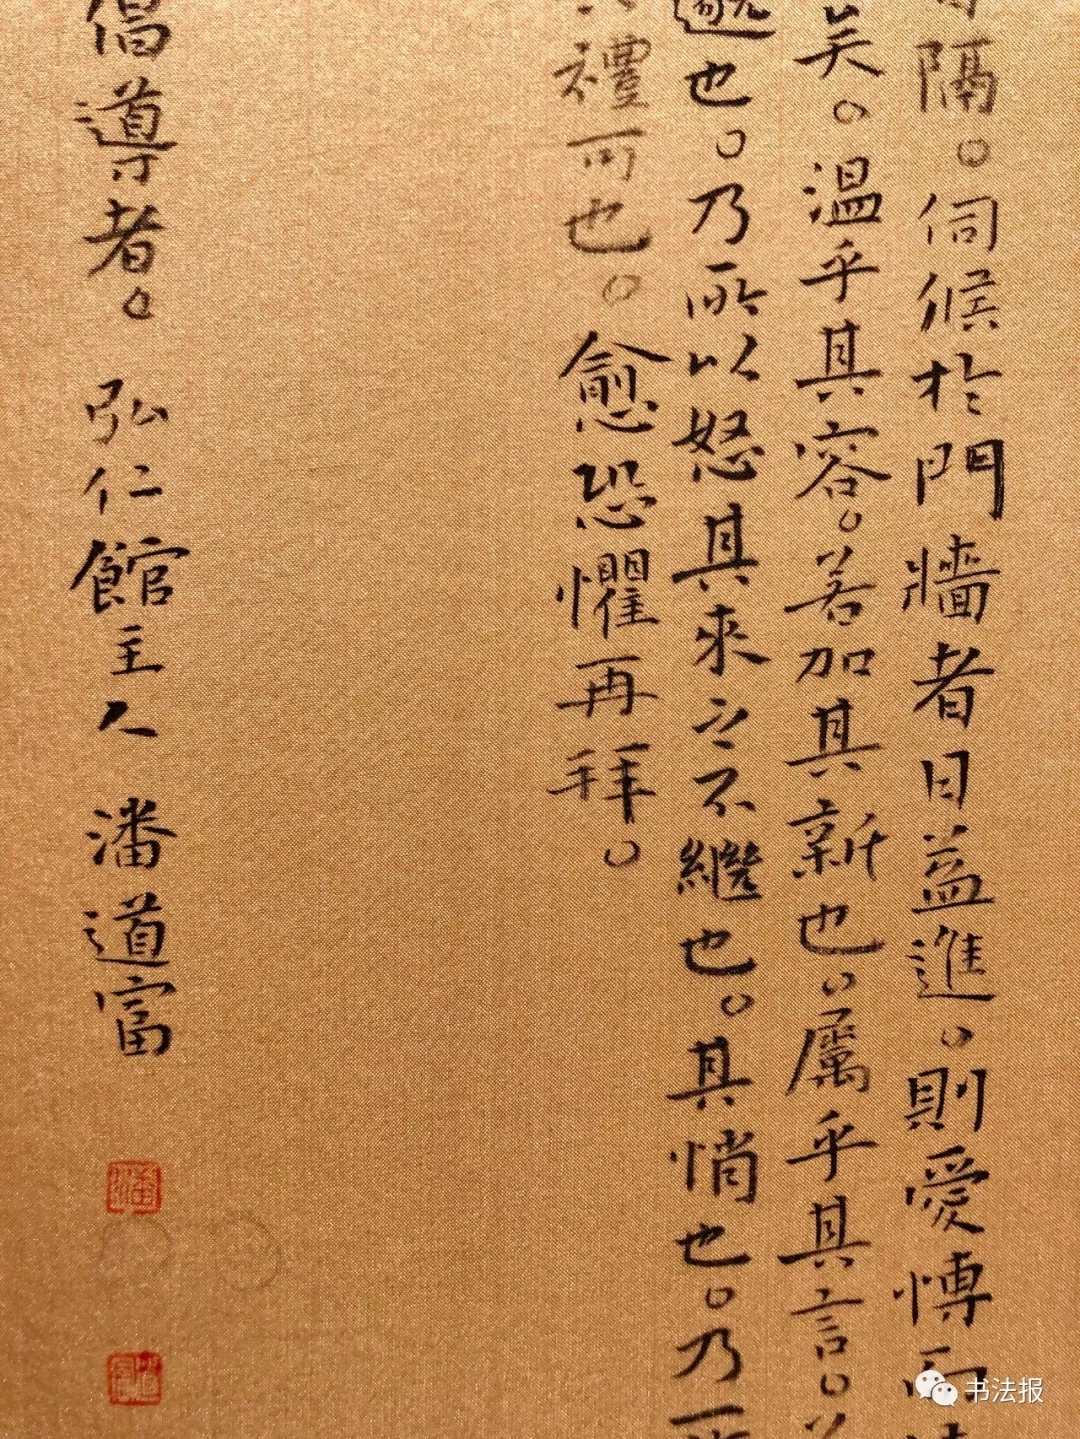 隔。伺候於門牆者日益進。則愛愽而
矣。温乎其容。若加其新也。屬乎其言。
邈也。乃所以怒其來之不繼也。其悄也。乃
禮可也。愈恐懼再拜。
倡導者。弘仁館主人 潘道富
潘
道富
书法报